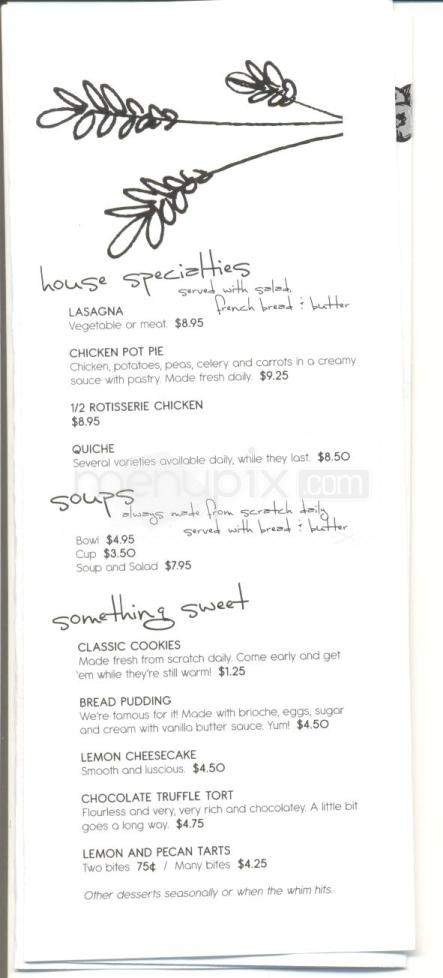 house specialties
served with salad,
french bread & butter
LASAGNA
Vegetable or meat $8.95
CHICKEN POT PIE
Chicken, potatoes, peas, celery and carrots in a creamy
sauce with pastry. Made fresh daily. $9.25
1/2 ROTISSERIE CHICKEN
$8.95
QUICHE
Several varieties available daily, while they last. $8.50
menupix.com
soups
always made from scratch daily
served with bread & butter
Bowl $4.95
Cup $3.50
Soup and Salad $7.95
something sweet
CLASSIC COOKIES
Made fresh from scratch daily. Come early and get
'em while they're still warm! $1.25
BREAD PUDDING
We're famous for it! Made with brioche, eggs, sugar
and cream with vanilla butter sauce. Yum! $4.50
LEMON CHEESECAKE
Smooth and luscious. $4.50
CHOCOLATE TRUFFLE TORT
Flourless and very, very rich and chocolatey. A little bit
goes a long way. $4.75
LEMON AND PECAN TARTS
Two bites 75¢ / Many bites $4.25
Other desserts seasonally or when the whim hits.